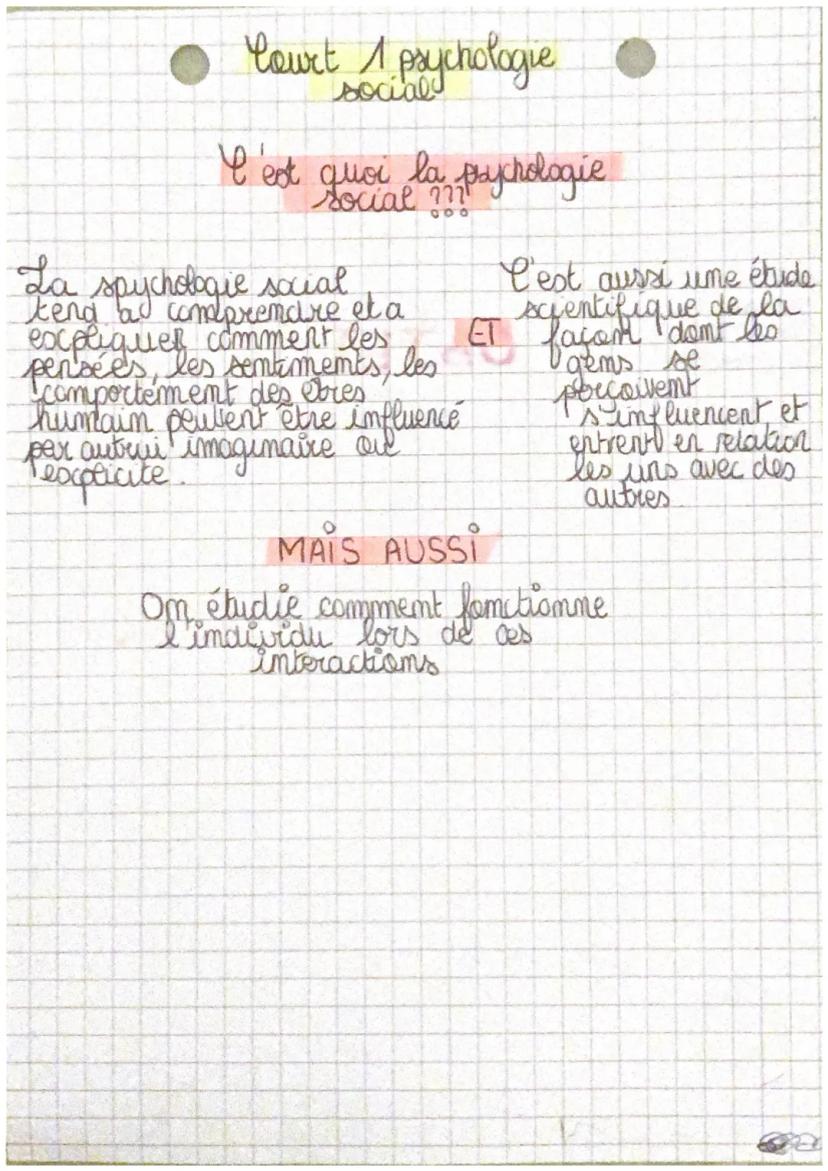 Court 1 psychologie
social
C'est quoi la psychologie
social ???
La spychologie social
tend a comprendre et a
expliquer comment les
pensées, les sentiments, les
comportement des etres
humain peuvent être influencé
par autrui imaginaire ou
explicite.
ET
C'est aussi une étude
scientifique de la
façon dont les
gens se
perçoivent
s'influencent et
entrent en relation
les uns avec des
autres
MAIS AUSSI
On étudie comment fonctionne
l'individu lors de ces
interactions